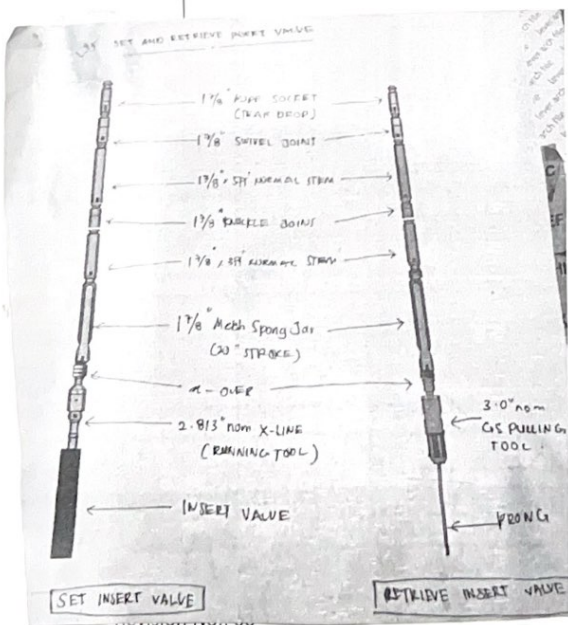 SET AND RETRIEVE INSERT VALVE
1 7/8" ROPE SOCKET
(TEAR DROP)
1 7/8" SWIVEL JOINT
1 7/8" x 5ft NORMAL STEM
1 7/8" KNUCKLE JOINS
1 7/8" x 3ft NORMAL STEM
1 7/8" Mech Spang Jar
(20" STROKE)
X-OVER
2.813" nom X-LINE
(RUNNING TOOL)
3.0" nom
GS PULLING
TOOL
INSERT VALVE
PRONG
SET INSERT VALVE
RETRIEVE INSERT VALVE